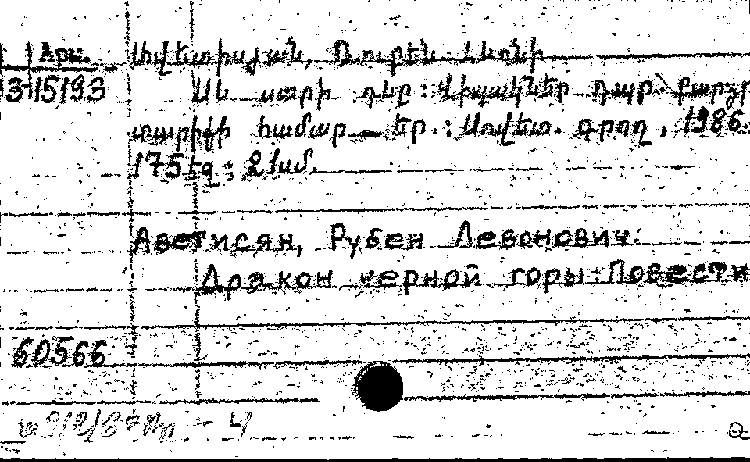 Արմ. Ավետիսյան, Ռուբեն Լևոնի
3 15193 Սև սարի դևը : Վիպակներ դպր. բարձր
տարիքի համար_ Եր. : Սովետ. գրող, 1986.
175 էջ ; 21սմ.
Аветисян, Рубен Левонович.
Дракон черной горы : Повести
60566